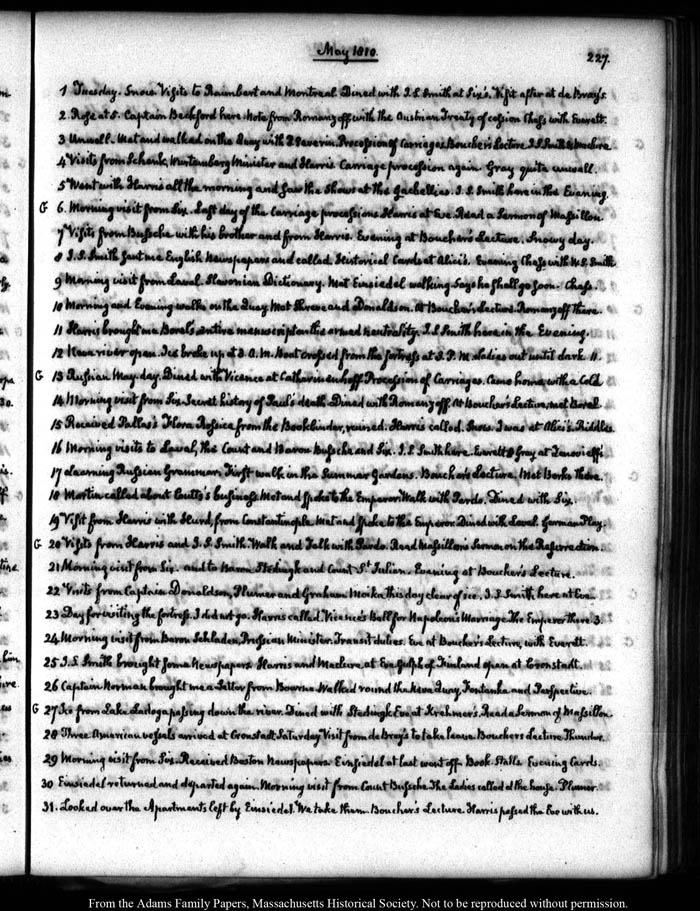 May 1810.
227.
1 Tuesday. Snow. Visits to Raimbert and Montreal. Dined with J. S. Smith at Six's. Visit after at de Bray's.
2. Rose at 5. Captain Beckford here. Note from Romanzoff with the Austrian Treaty of cession. Chess with Everett.
3 Unwell. Met and walked on the Quay with Severin. Procession of Carriages. Boucher's Lecture. J. S. Smith & Maclure
4 Visits from Schenk, Wurtemberg Minister and Harris. Carriage procession again. Gray quite unwell.
5 Went with Harris all the morning and saw the Shows at the . J. S. Smith here in the Evening.
G 6. Morning visit from Six. Last day of the Carriage processions. Harris at Eve. Read a Sermon of Massillon.
7 Visits from Bussche with his brother and from Harris. Evening at Boucher's Lecture. Snowy day.
8 J. S. Smith sent me English Newspapers and called. Historical Cards at Alici's. Evening Chess with W. S. Smith
9 Morning visit from Laval. Slavonian Dictionary. Met Einsiedel walking. Says he shall go soon. Chess.
10 Morning and Evening walks on the Quay. Met and Donaldson. At Boucher's Lecture. Romanzoff there.
11 Harris brought me Borel's entire manuscript on the armed neutrality. J. S. Smith here in the Evening.
12 Neva river open. Ice broke up at 3. A.M. Boat crossed from the fortress at P.M. Ladies out until dark 11.
G 13 Russian May-day. Dined with Vicence at Catharinenhoff. Procession of Carriages. Came home with a Cold
14 Morning visit from Six. Secret history of Paul's death. Dined with Romanzoff. At Boucher's Lecture, met Borel
15 Received Pallas's Flora Rossica from the Bookbinder, ruined. Harris called. Snow. I was at Alici's. Riddles
16 Morning visits to Laval, the Count and Baron Bussche and Six. J. S. Smith here. Everett & Gray at
17 Learning Russian Grammar. First walk in the Summer Gardens. Boucher's Lecture. Met Berks there.
18 Martin called about Coutts's business. Met and spoke to the Emperor. Walk with Pardo. Dined with Six.
19 Visit from Harris with Hurd, from Constantinople. Met and spoke to the Emperor. Dined with Laval. German Play.
G 20 Visits from Harris and J. S. Smith. Walk and Talk with Pardo. Read Massillon's Sermon on the Resurrection.
21 Morning visit from Six. and to Baron Stedingk and Count St. Julien. Evening at Boucher's Lecture.
22 Visits from Captain Donaldson, Plumer and Graham. Moika this day clear of ice. J. S. Smith here at Eve
23 Day for visiting the fortress. I did not go. Harris called. Vicence's Ball for Napoleon's Marriage. The Emperor there. 3.
24. Morning visit from Baron Schladen, Prussian Minister. Transit duties. Eve at Boucher's Lecture, with Everett.
25 J. S. Smith brought some Newspapers. Harris and Maclure at Eve. Gulph of Finland open at Cronstadt.
26 Captain Norman brought me a Letter from Bourne. Walked round the Neva Quay, Fontanka and Perspective.
G 27 Ice from Lake Ladoga passing down the river. Dined with Stedingk. Eve at Krehmer's. Read a Sermon of Massillon
28 Three American vessels arrived at Cronstadt Saturday. Visit from de Bray's to take leave. Boucher's Lecture. Thunder.
29 Morning visit from Six. Received Boston Newspapers. Einsiedel at last went off. Book-Stalls. Evening Cards.
30 Einsiedel returned and departed again. Morning visit from Count Bussche. The Ladies called at the house. Plumer.
31. Looked over the Apartments left by Einsiedel. We take them. Boucher's Lecture. Harris passed the Eve with us.
From the Adams Family Papers, Massachusetts Historical Society. Not to be reproduced without permission.